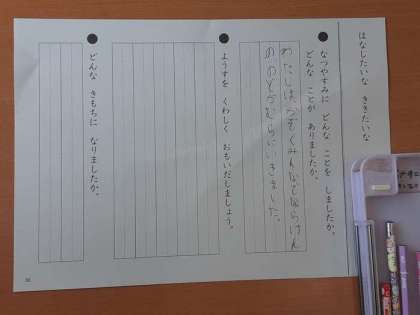 はなしたいな ききたいな
なつやすみに どんな ことを しましたか。
どんな ことが ありましたか。
わたしは、かぞくみんなでならけん
の むらにいきました。
ようすを くわしく おもいだしましょう。
どんな きもちに なりましたか。